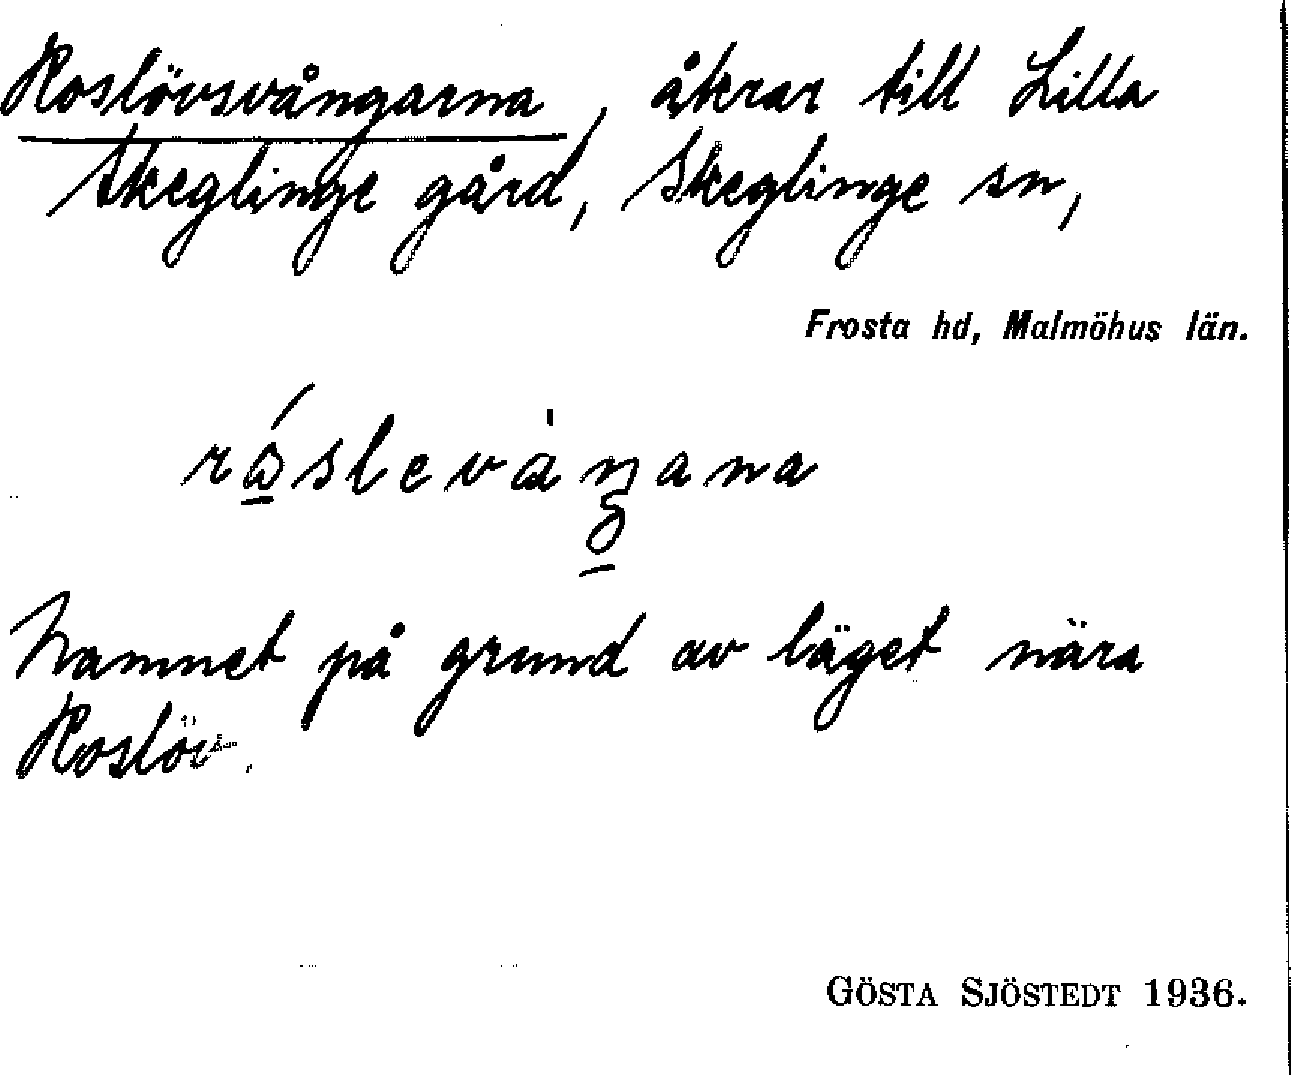 Roslövsvångarna, åkrar till Lilla
Skeglinge gård, Skeglinge sn,
Frosta hd, Malmöhus län.
Namnet på grund av läget nära
Roslöv.
GÖSTA SJÖSTEDT 1936.